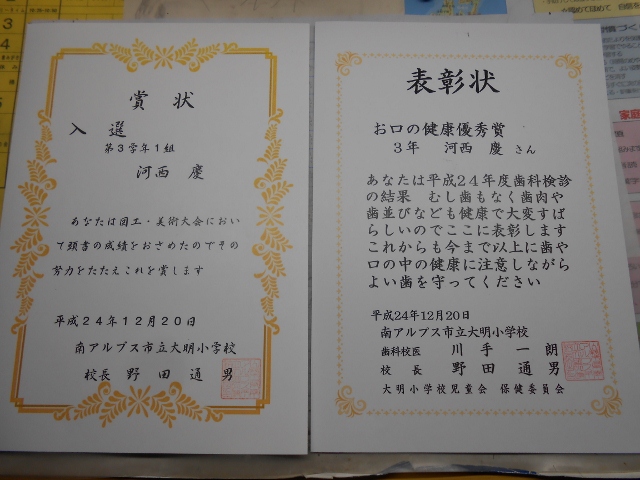 賞状
入選
第3学年1組
河西 慶
あなたは図工・美術大会におい
て頭書の成績をおさめたのでその
努力をたたえこれを賞します
平成24年12月20日
南アルプス市立大明小学校
校長 野田通男
表彰状
お口の健康優秀賞
3年 河西 慶 さん
あなたは平成24年度歯科検診
の結果 むし歯もなく歯肉や
歯並びなども健康で大変すば
らしいのでここに表彰します
これからも今まで以上に歯や
口の中の健康に注意しながら
よい歯を守ってください
平成24年12月20日
南アルプス市立大明小学校
歯科校医 川手一朗
校長 野田通男
大明小学校児童会 保健委員会
家庭